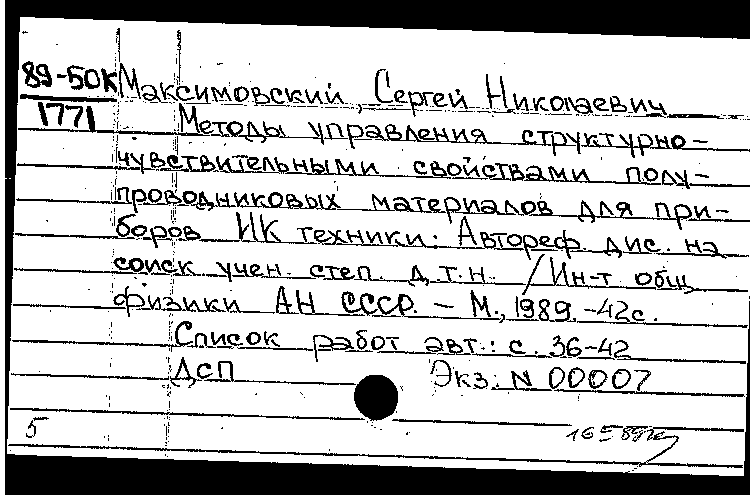 89-50К Максимовский, Сергей Николаевич
1771 Методы управления структурно-
чувствительными свойствами полу-
проводниковых материалов для при-
боров ИК техники: Автореф. дис. на
соиск учен. степ. д.т.н. /Ин-т общ.
физики АН СССР. – М., 1989.-42с.
Список работ авт.: с. 36-42
ДСП Экз: N 00007
5